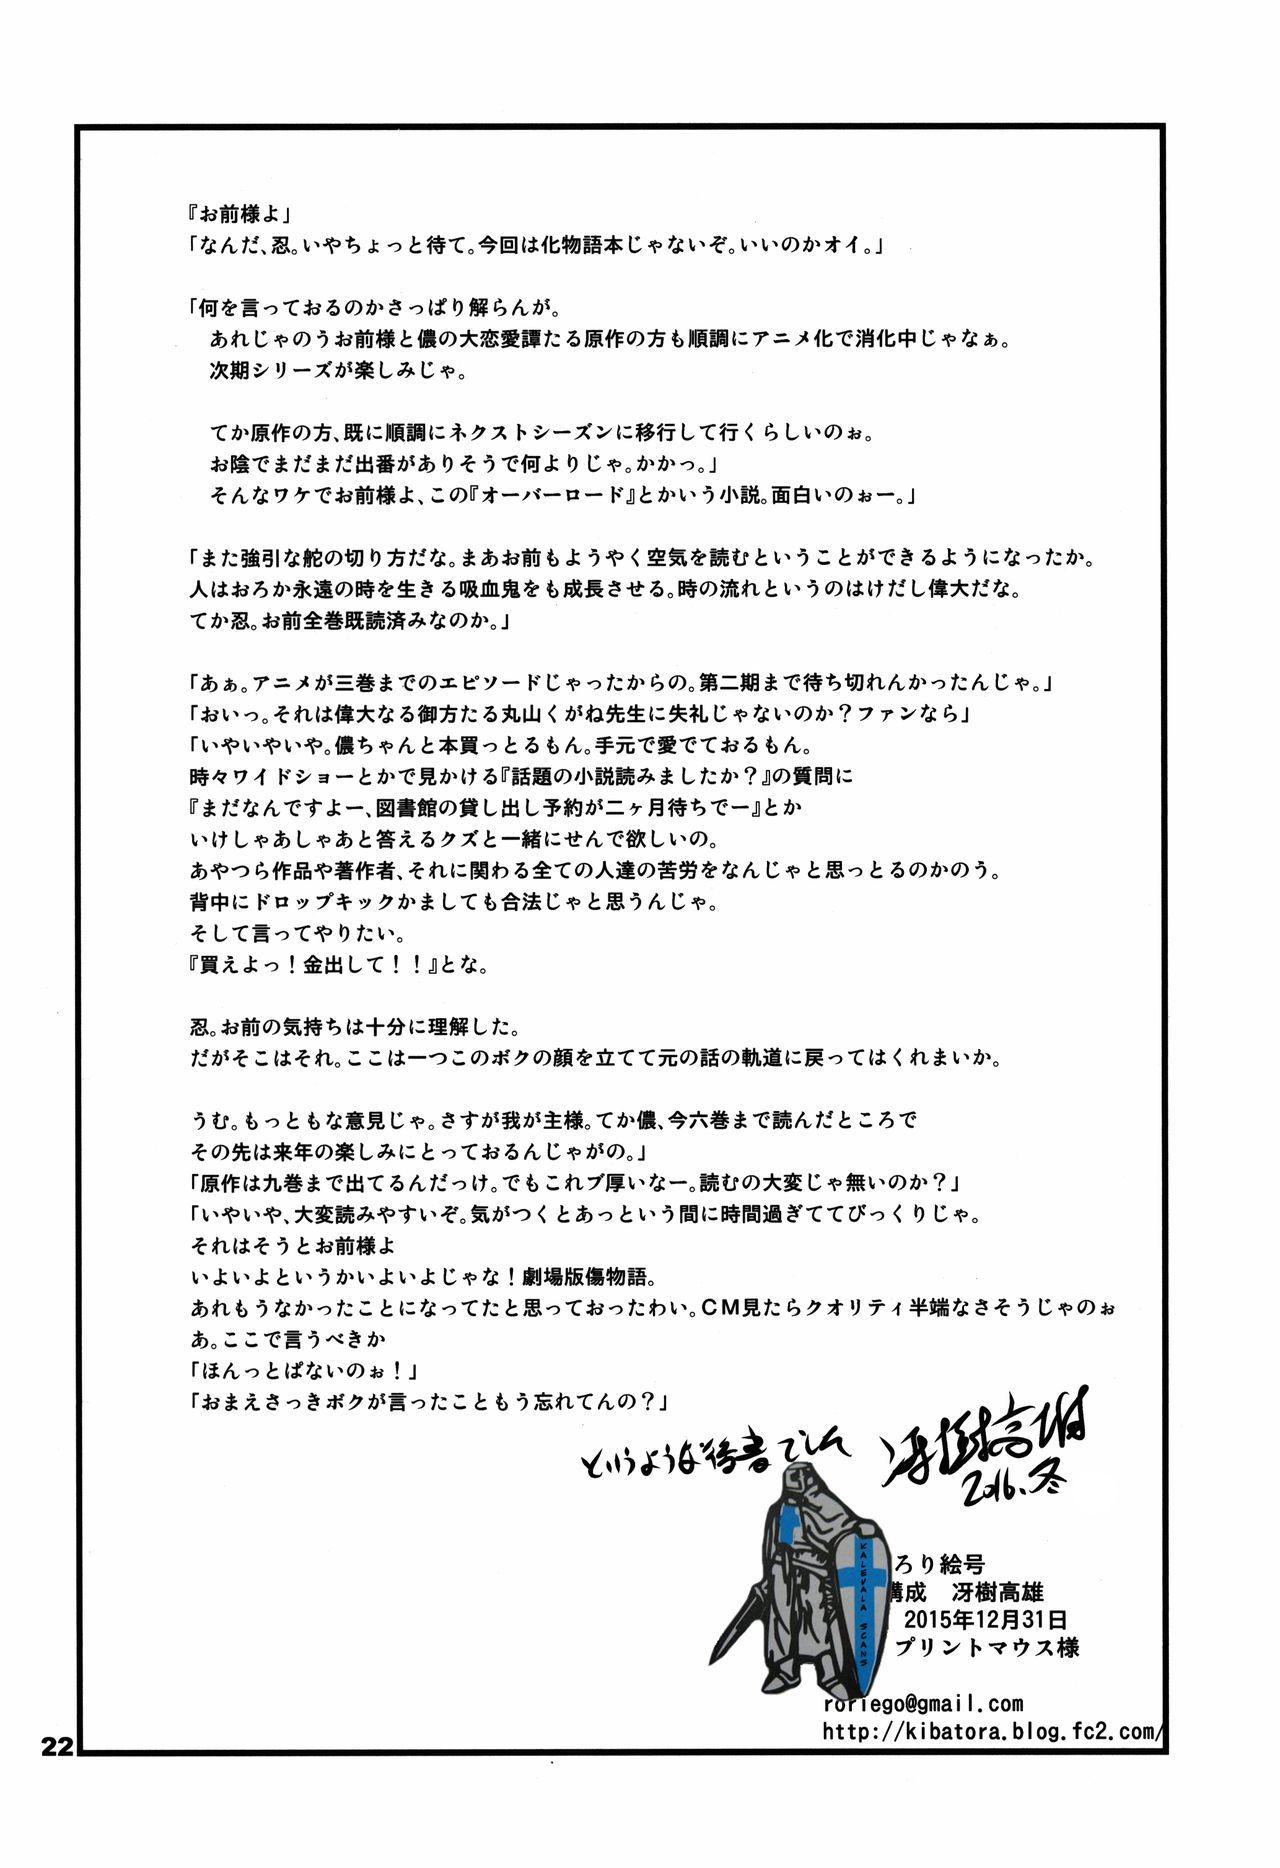 『お前様よ」
「なんだ、忍。いやちょっと待て。今回は化物語本じゃないぞ。いいのかオイ。」
「何を言っておるのかさっぱり解らんが。
あれじゃのうお前様と儂の大恋愛譚たる原作の方も順調にアニメ化で消化中じゃなぁ。
次期シリーズが楽しみじゃ。
てか原作の方、既に順調にネクストシーズンに移行して行くらしいのぉ。
お陰でまだまだ出番がありそうで何よりじゃ。かかっ。」
そんなワケでお前様よ、この『オーバーロード』とかいう小説。面白いのぉー。」
「また強引な舵の切り方だな。まあお前もようやく空気を読むということができるようになったか。
人はおろか永遠の時を生きる吸血鬼をも成長させる。時の流れというのはけだし偉大だな。
てか忍。お前全巻既読済みなのか。」
「あぁ。アニメが三巻までのエピソードじゃったからの。第二期まで待ち切れんかったんじゃ。」
「おいっ。それは偉大なる御方たる丸山くがね先生に失礼じゃないのか？ファンなら」
「いやいやいや。儂ちゃんと本買っとるもん。手元で愛でておるもん。
時々ワイドショーとかで見かける『話題の小説読みましたか？』の質問に
『まだなんですよー、図書館の貸し出し予約が二ヶ月待ちでー』とか
いけしゃあしゃあと答えるクズと一緒にせんで欲しいの。
あやつら作品や著作者、それに関わる全ての人達の苦労をなんじゃと思っとるのかのう。
背中にドロップキックかましても合法じゃと思うんじゃ。
そして言ってやりたい。
『買えよっ！金出して！！』とな。
忍。お前の気持ちは十分に理解した。
だがそこはそれ。ここは一つこのボクの顔を立てて元の話の軌道に戻ってはくれまいか。
うむ。もっともな意見じゃ。さすが我が主様。てか儂、今六巻まで読んだところで
その先は来年の楽しみにとっておるんじゃがの。」
「原作は九巻まで出てるんだっけ。でもこれブ厚いなー。読むの大変じゃ無いのか？」
「いやいや、大変読みやすいぞ。気がつくとあっという間に時間過ぎててびっくりじゃ。
それはそうとお前様よ
いよいよというかいよいよじゃな！劇場版傷物語。
あれもうなかったことになってたと思っておったわい。CM見たらクオリティ半端なさそうじゃのぉ
あ。ここで言うべきか
「ほんっとぱないのぉ！」
「おまえさっきボクが言ったこともう忘れてんの？」
というような後書でした 冴樹高雄
2016.冬
KALEVALA SCANS
ろり絵号
構成　冴樹高雄
2015年12月31日
プリントマウス様
roriego@gmail.com
http://kibatora.blog.fc2.com/
22